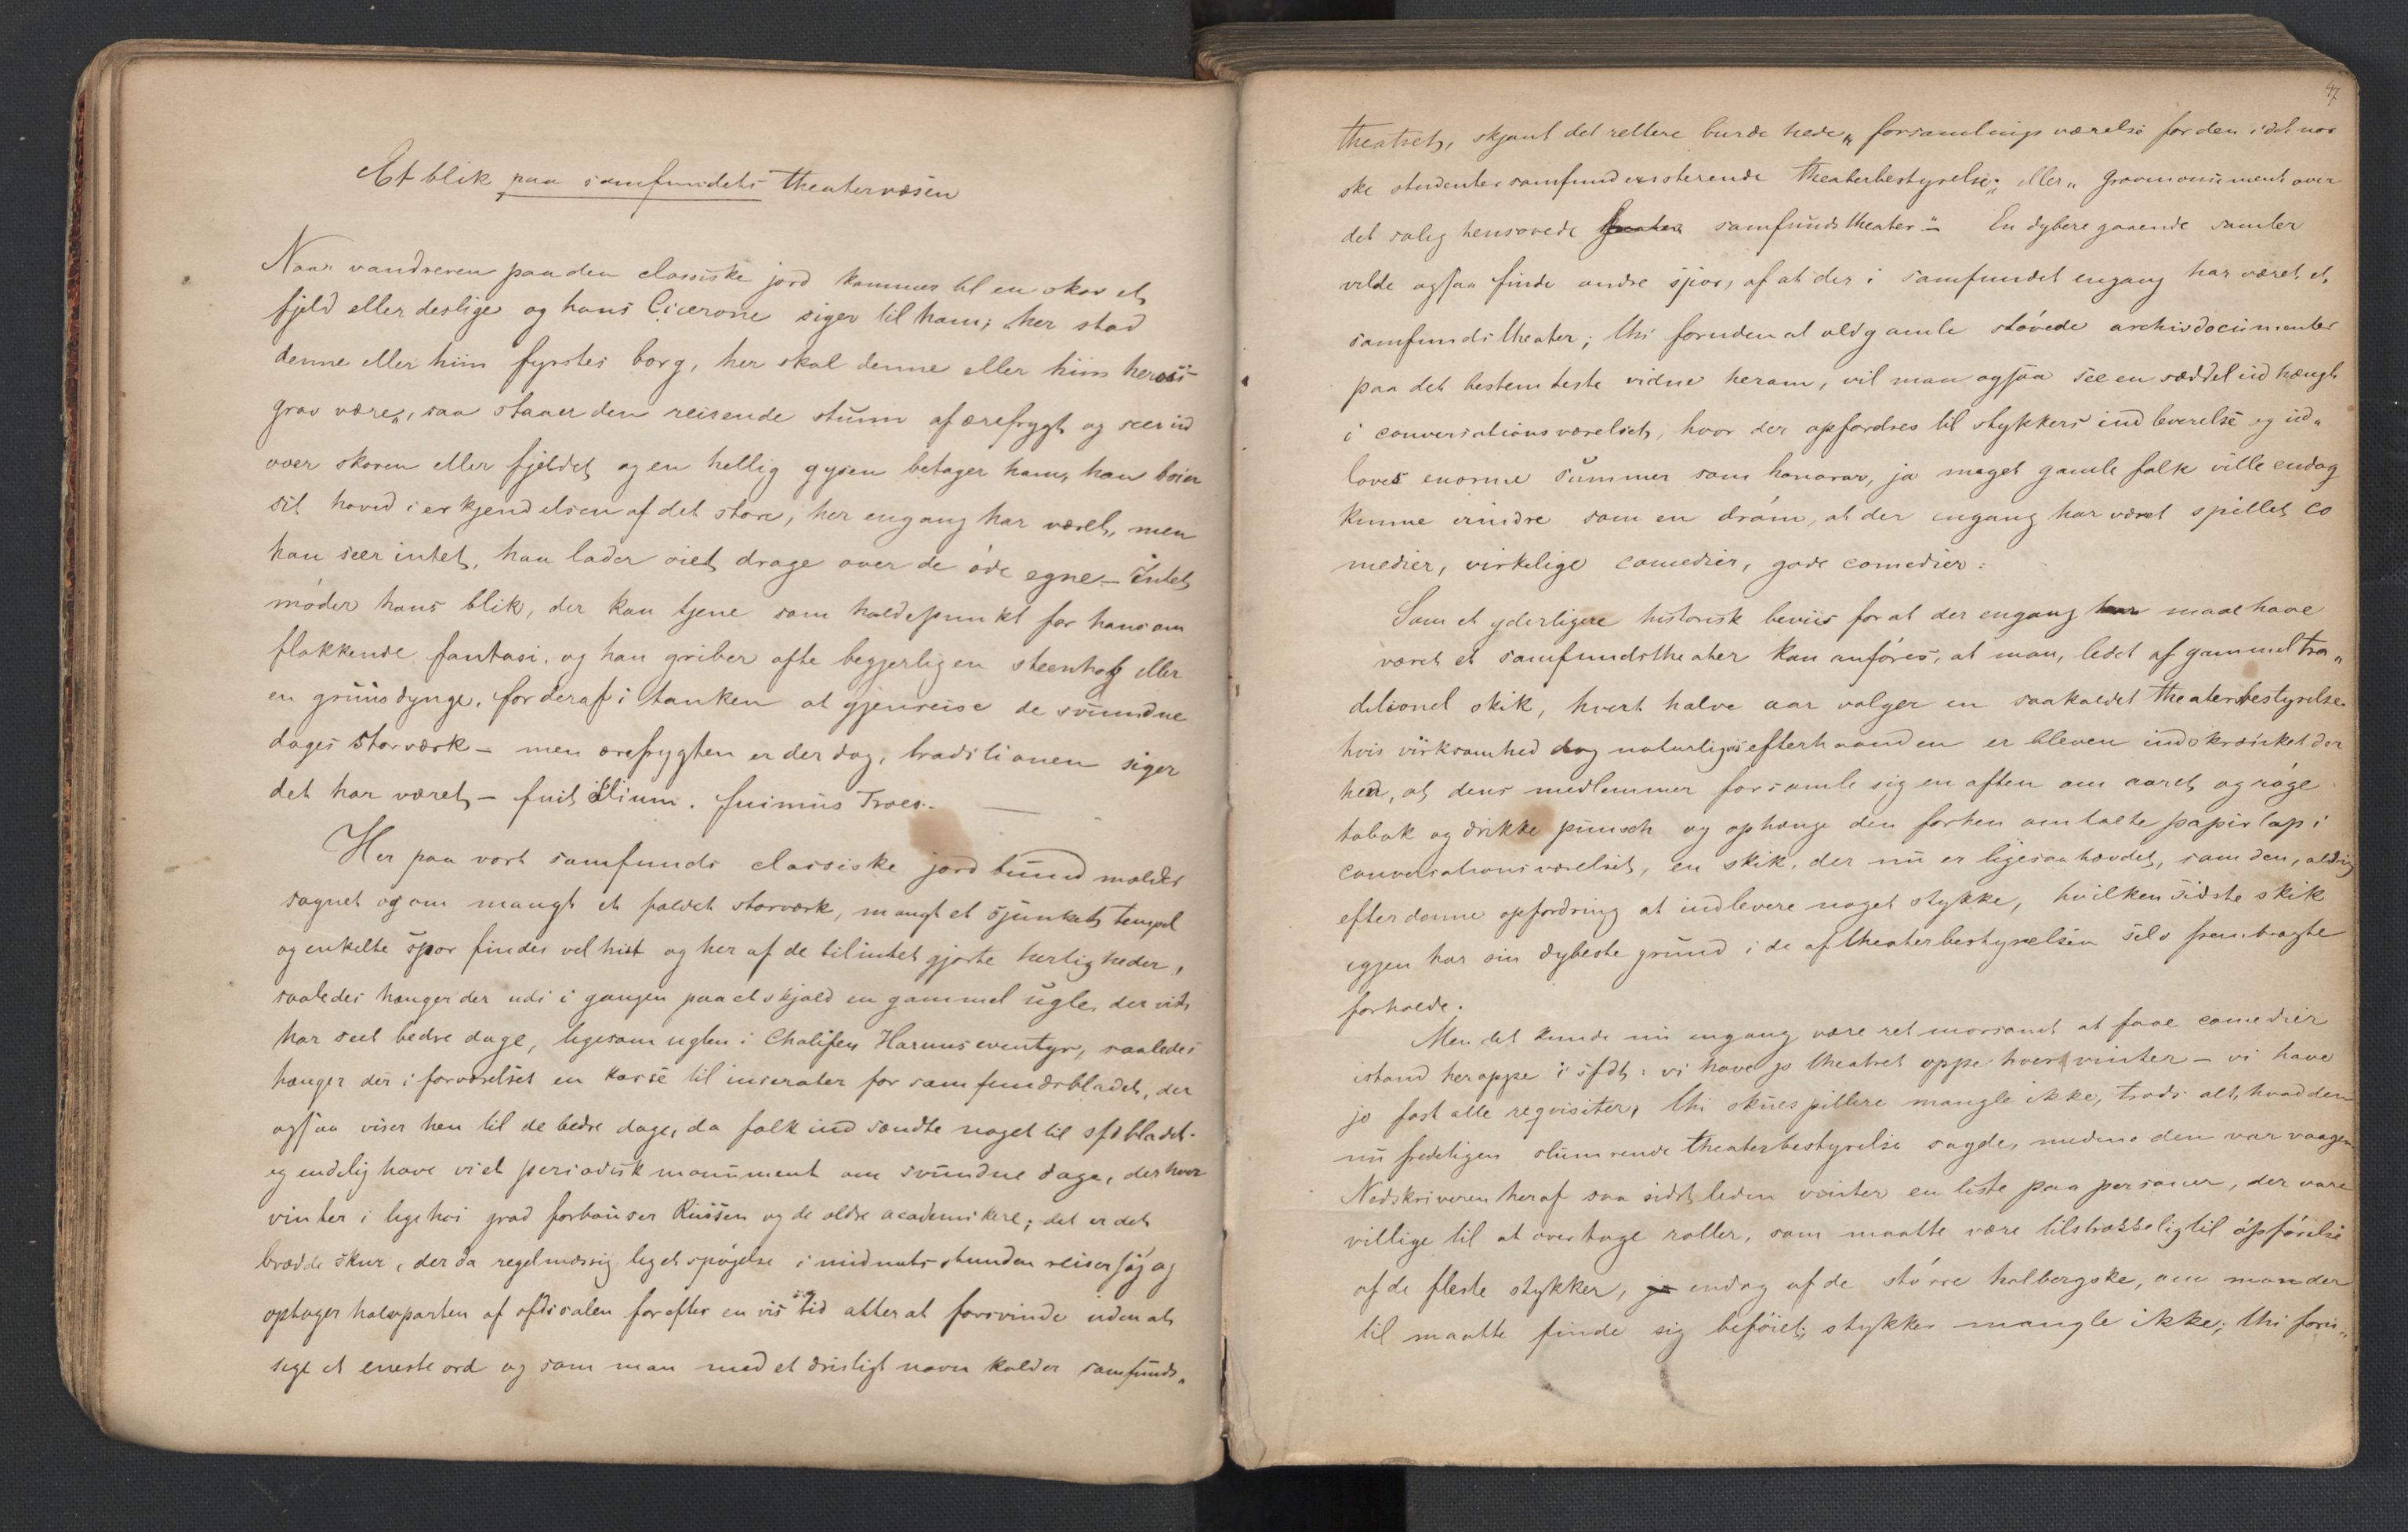 Et blik paa samfundets theatervæsen
Naar vandreren paa den classiske jord kommer til en skov et
fjeld eller deslige og hans Cicerone siger til ham; „her stod
denne eller hiin fyrstes borg, her skal denne eller hiin heros's
grav være„, saa staaer den reisende stum af ærefrygt og seer ud
over skoven eller fjeldet og en hellig gysen betager ham, han bøier
sit hoved i erkjendelsen af det store, her engang har været, men
han seer intet, han lader øiet drage over de øde egne – Intet
møder hans blik, der kan tjene som holdepunkt for hans om
flakkende fantasi, og han griber ofte begjerlig en steenhob eller
en gruusdynge, for deraf i tanken at gjenreise de svundne
dages storværk – men ærefrygten er der dog, traditionen siger
det har været, – fuit Ilium. fuimus Troes. —
Her paa vort samfunds classiske jordbund melder
sagnet og om mangt et faldet storværk, mangt et sjunket tempel
og enkelte spor findes vel hist og her af de tilintetgjorte herligheder,
saaledes hænger der ude i gangen paa et skjold en gammel ugle, der vist
har seet bedre dage, ligesom uglen i Chalifen Haruns eventyr, saaledes
hænger der i forværelset en kasse til inserater for samfundsbladet, der
ogsaa viser hen til de bedre dage, da folk indsendte noget til sfdbladet.
og endelig have vi et periodisk monument om svundne dage, der hver
vinter i lige høi grad forbauser Russen og de ældre academikere; det er det
brædde skur, der da regelmæssig lig et spøgelse i midnats stunden reiser sig og
optager halvparten af sfdssalen for efter en vis tid atter at forsvinde uden at
sige et eneste ord og som man med et dristigt navn kalder samfunds„
47
theatret, skjønt det rettere burde hede „forsamlingsværelse for den i det nor
ske studentersamfund existerende theaterbestyrelse„ eller „Gravmonument over
det salig hensovede samfundstheater." – En dybere gaaende samler
vilde ogsaa finde andre spor, af at der i samfundet engang har været et
samfundstheater; thi foruden at oldgamle støvede archivdocumenter
paa det bestemteste vidne herom, vil man ogsaa see en seddel udhængt
i conversationsværelset, hvor der opfordres til stykkers indleverelse og ud„
loves enorme summer som honorar, ja meget gamle folk ville endog
kunne erindre som en drøm, at der engang har været spillet co
medier, virkelige comedier, gode comedier.
Som et yderligere historisk beviis for at der engang maae have
været et samfundstheater kan anføres, at man, ledet af gammel tra„
ditionel skik, hvert halve aar vælger en saakaldet theaterbestyrelse
hvis virksomhed dog naturligviis efterhaanden er bleven indskrænket der
hen, at dens medlemmer forsamle sig en aften om aaret og røge
tobak og drikke punsch og ophænge den forhen omtalte papirlap i
conversationsværelset, en skik, der nu er ligesaa hævdet, som den, aldrig
efter denne opfordring at indlevere noget stykke, hvilken sidste skik
igjen har sin dybeste grund i de af theaterbestyrelsen selv frembragte
forholde.
Men det kunde nu engang være ret morsomt at faae comedier
istand heroppe i sfdt: vi have jo theatret oppe hver vinter – vi have
jo fast alle reqvisiter, thi skuespillere mangle ikke, trods alt, hvad den
nu fredeligen slumrende theaterbestyrelse sagde, medens den var vaagen
Nedskriveren heraf saa sidstleden vinter en liste paa personer, der vare
villige til at overtage roller, som maatte være tilstrækkelig til opførelse
af de fleste stykker, endog af de større holbergske, om man der
til maatte finde sig beføiet; stykker mangle ikke; thi foru„